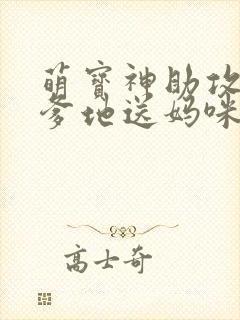 萌宝神助攻
爹地送妈咪
高士奇